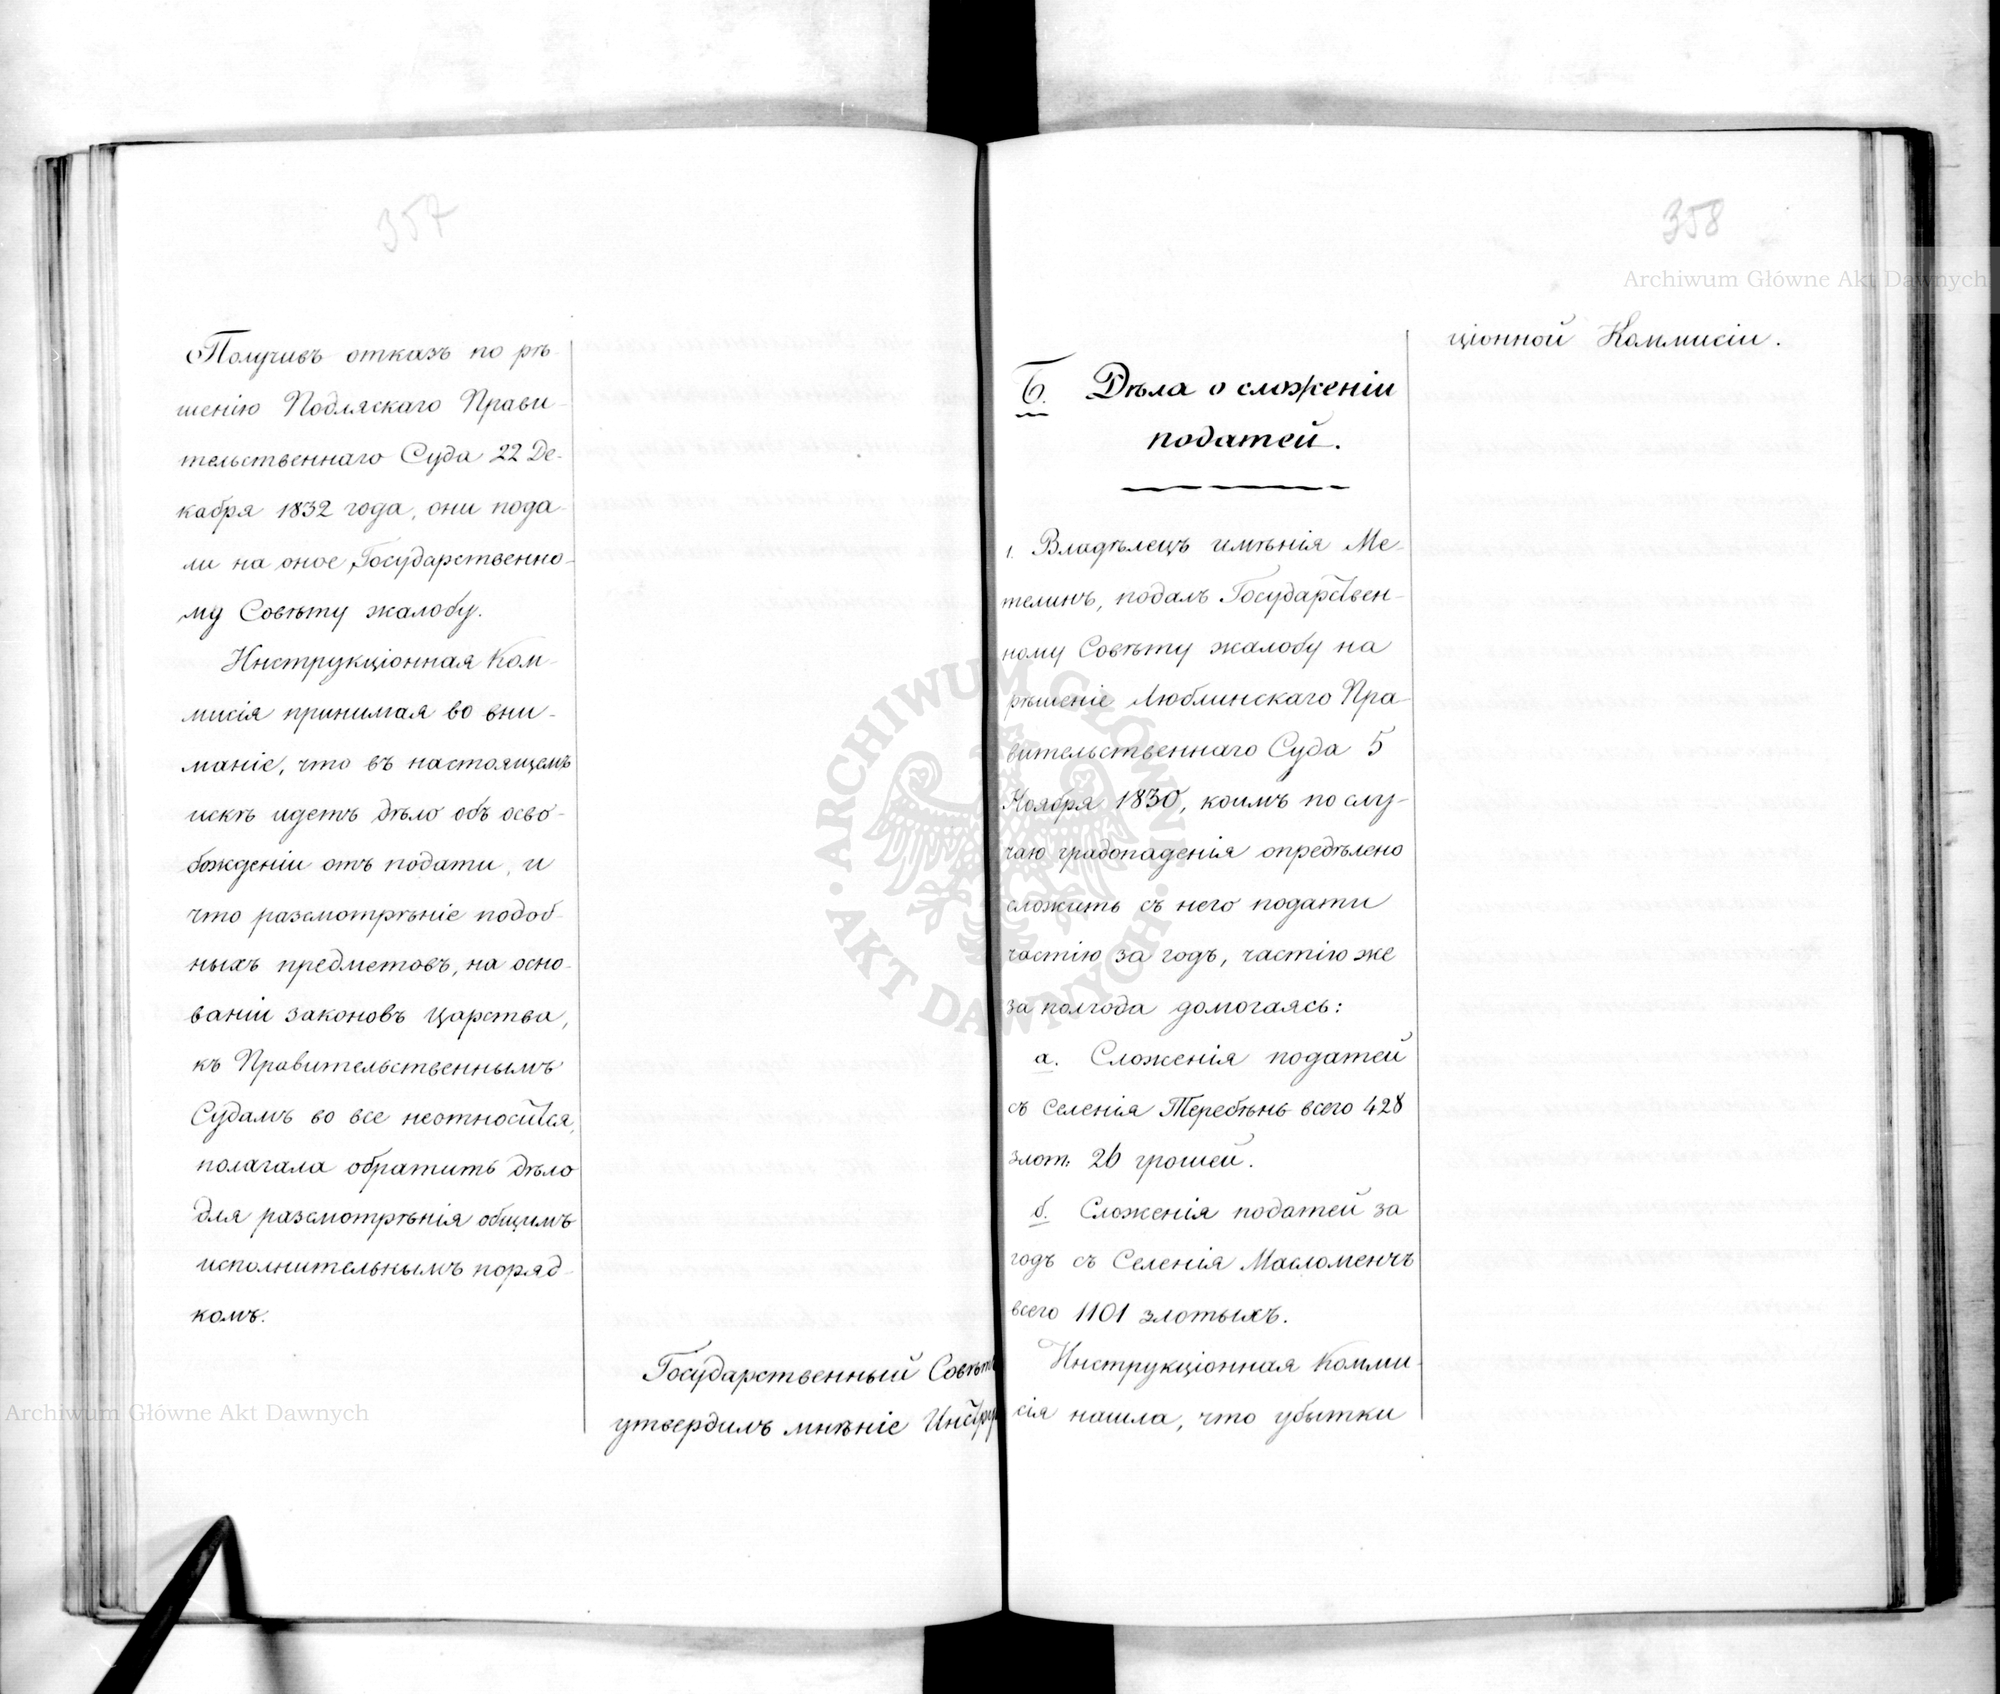 357
Получивъ отказъ по рѣ-
шенію Подляскаго Прави-
тельственнаго Суда 22 Де-
кабря 1832 года, они пода-
ли на оное Государственно-
му Совѣту жалобу.
Инструкціонная Ком-
мисія принимая во вни-
маніе, что въ настоящемъ
искѣ идетъ дѣло объ осво-
божденіи отъ подати, и
что разсмотрѣніе подоб-
ныхъ предметовъ, на осно-
ваніи законовъ Царства,
къ Правительственнымъ
Судамъ во все неотносится,
полагала обратить дѣло
для разсмотрѣнія общимъ
исполнительнымъ поряд-
комъ.
Государственный Совѣтъ
утвердилъ мнѣніе Инстру
358
Archiwum Główne Akt Dawnych
ціонной Коммисіи.
Б. Дѣла о сложеніи
податей.
1. Владѣлецъ имѣнія Ме-
телинъ, подалъ Государствен-
ному Совѣту жалобу на
рѣшеніе Люблинскаго Пра-
вительственнаго Суда 5
Ноября 1830, коимъ по слу-
чаю градопаденія опредѣлено
сложить съ него подати
частію за годъ, частію же
за полгода домогаясь:
а. Сложенія податей
съ селенія Теребѣнь всего 428
злот: 26 грошей.
б. Сложенія податей за
годъ съ Селенія Масломенчъ
всего 1101 злотыхъ.
Инструкціонная Комми-
сія нашла, что убытки
ARCHIWUM GŁÓWNE · AKT DAWNYCH ·
Archiwum Główne Akt Dawnych